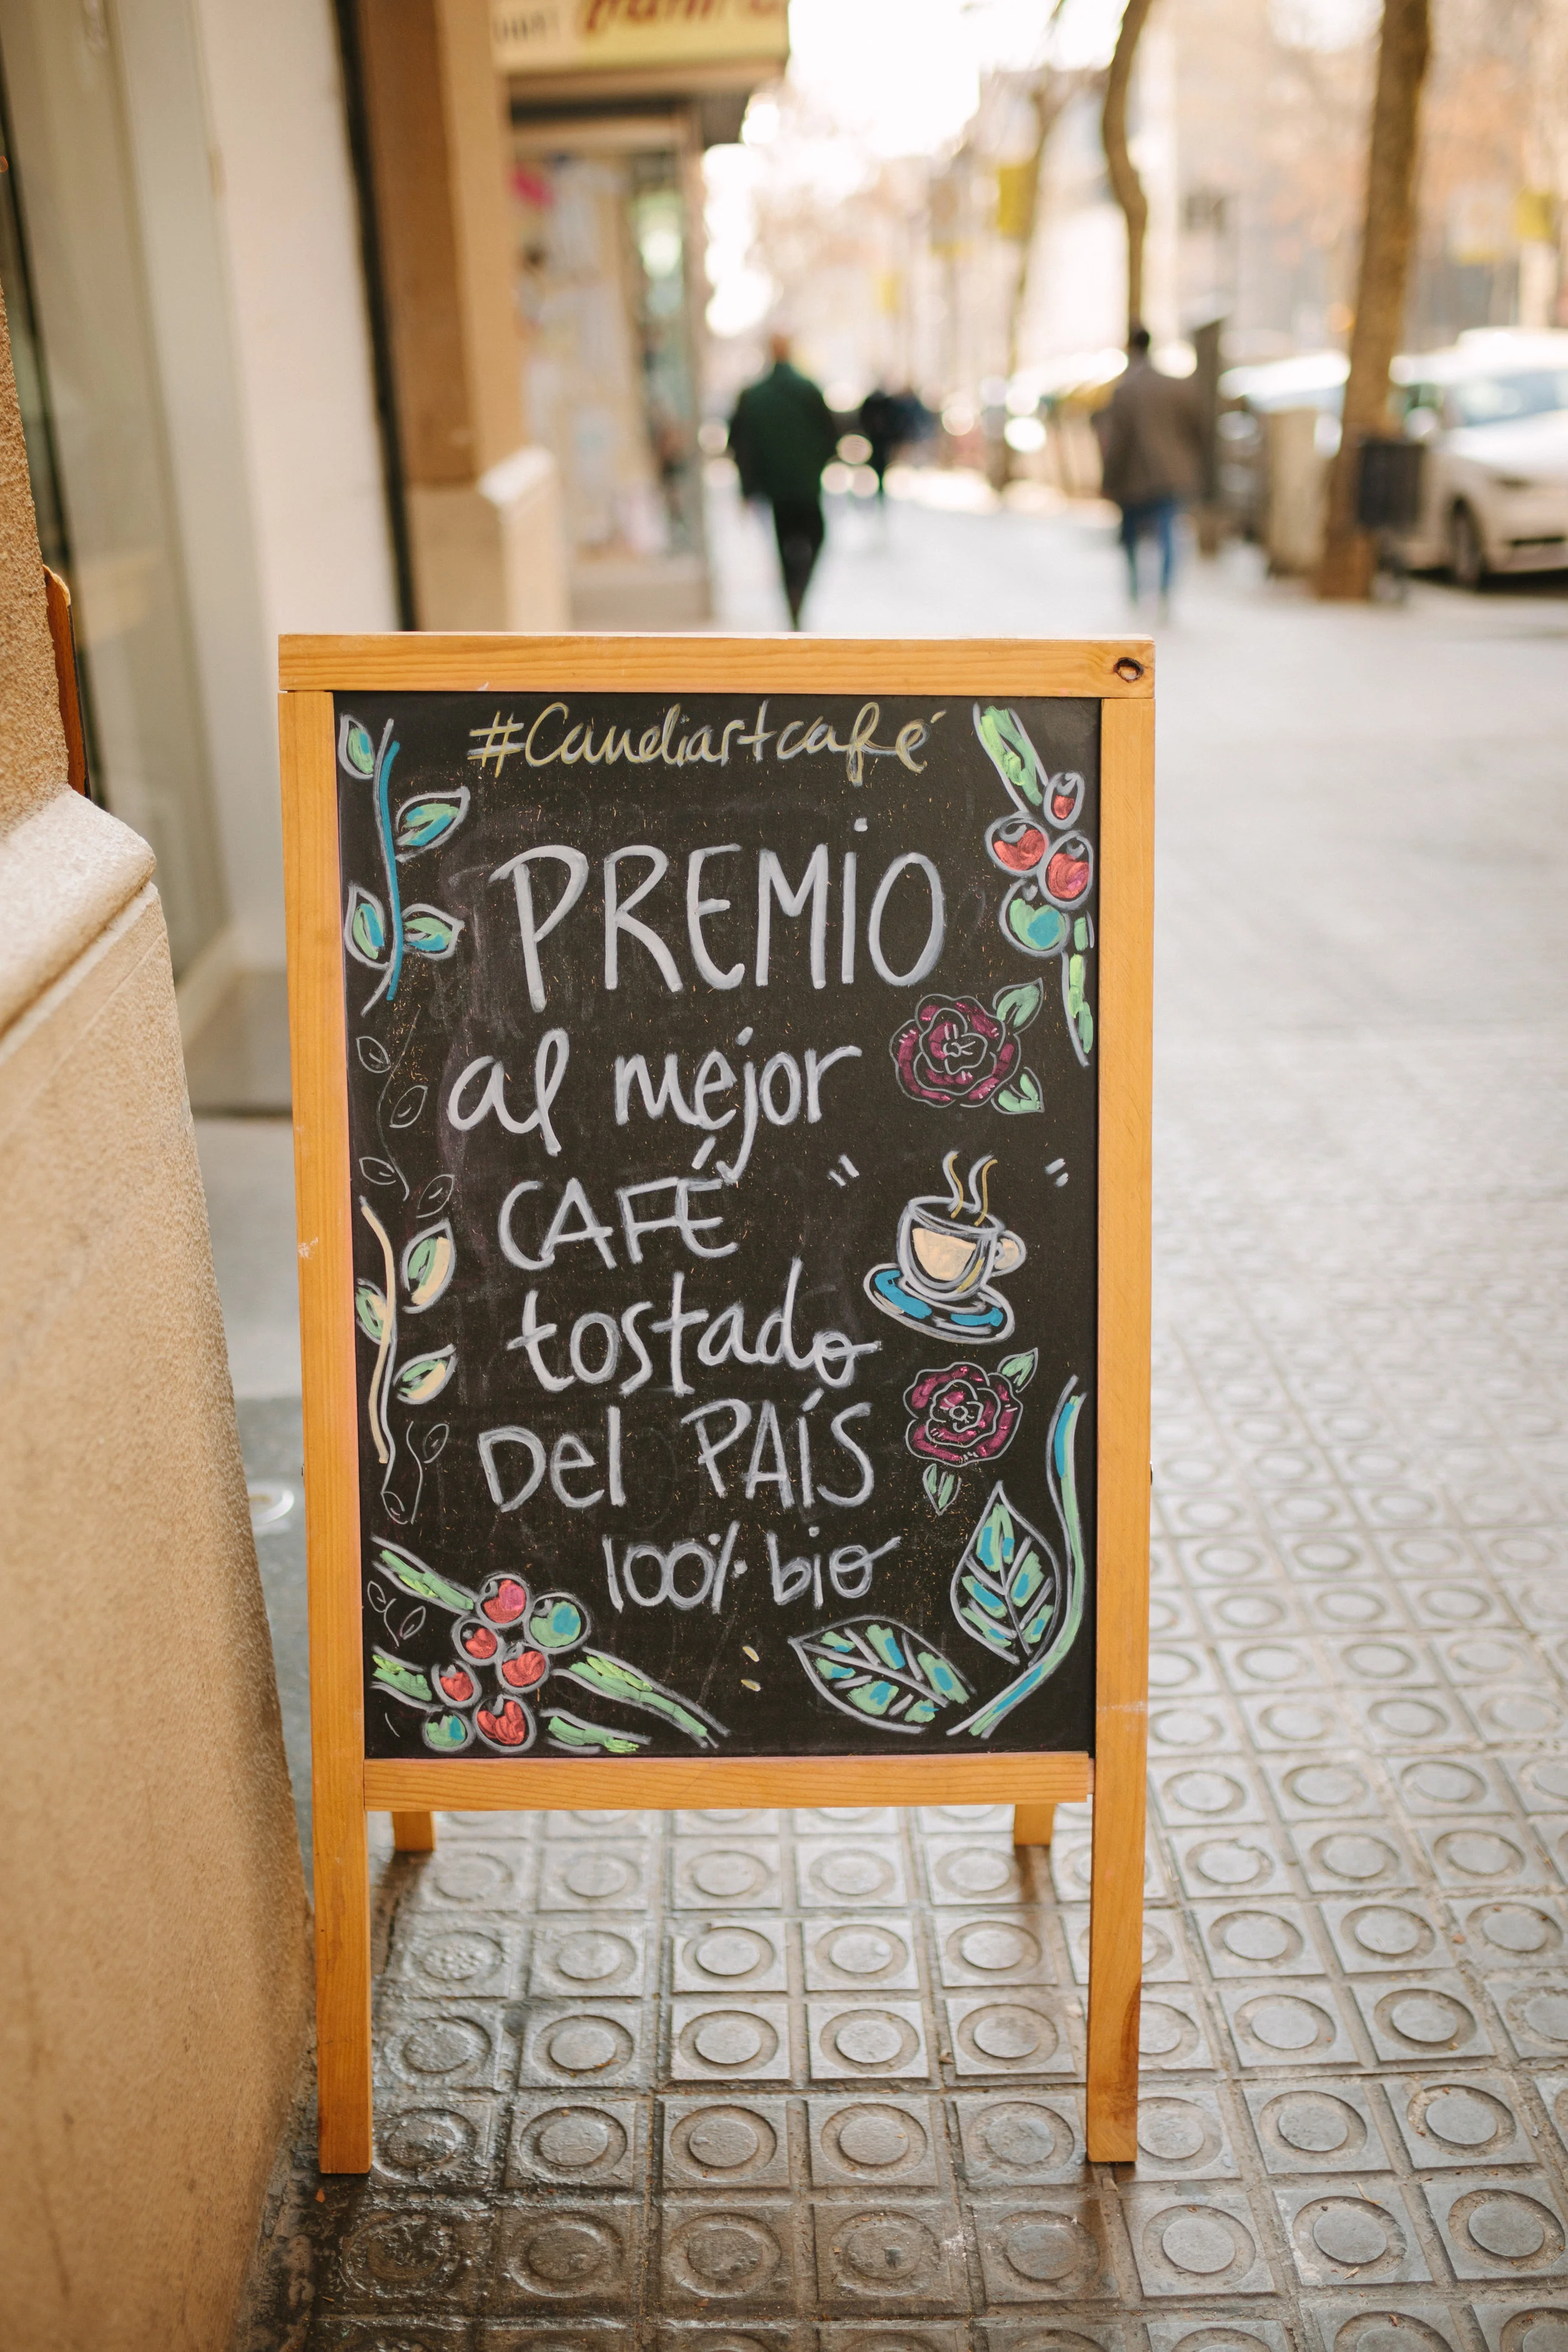 #Candiartcafé
PREMIO
al mejor
CAFÉ
tostado
Del PAÍS
100% bio